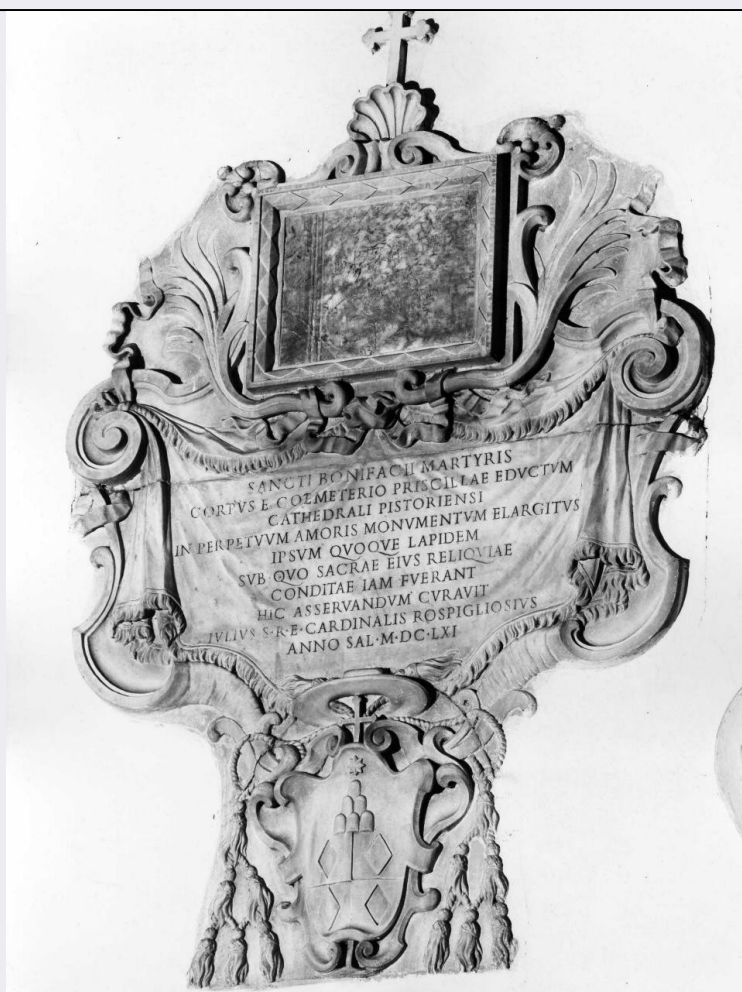 SANCTI BONIFACII MARTYRIS
CORPVS E COEMETERIO PRISCILLAE EDVCTVM
CATHEDRALI PISTORIENSI
IN PERPETVVM AMORIS MONVMENTVM ELARGITVS
IPSVM QVOQVE LAPIDEM
SVB QVO SACRAE EIVS RELIQVIAE
CONDITAE IAM FVERANT
HIC ASSERVANDVM CVRAVIT
IVLIVS S·R·E·CARDINALIS ROSPIGLIOSIVS
ANNO SAL·M·DC·LXI